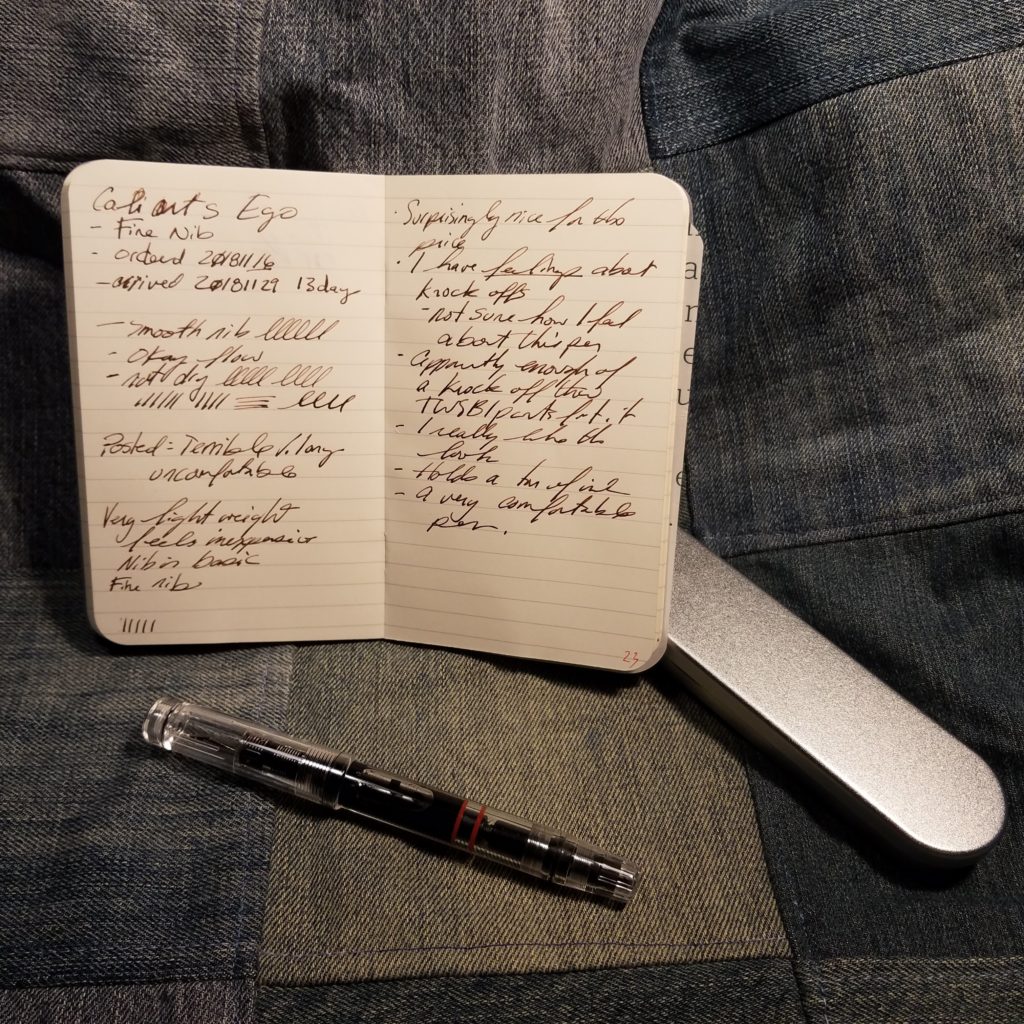 Caliarts Ego
- Fine Nib
- ordered 20181116
- arrived 20181129 13day
- smooth nib lllllll
- Okay flow
- not dry llll llll
Posted = Terrible / long
uncomfortable
Very light weight
feels inexpensive
Nib is basic
Fine nib
· Surprisingly nice for the
price
· I have feelings about
knock offs
- not sure how I feel
about this pen
- apparently enough of
a knock off that
TWSBI parts fit it
- I really like the
look
- Holds a ton of ink
- a very comfortable
pen.
23
a
n
e
u
e